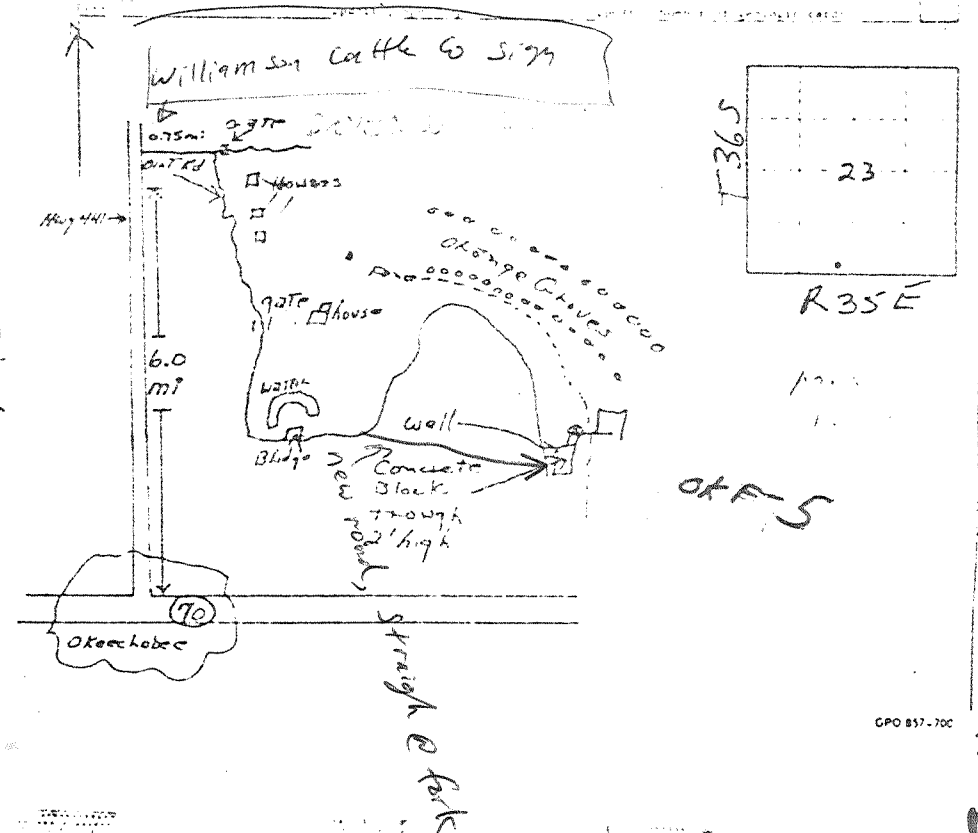 Williamson Cattle Co sign
0.75mi
gate
Dirt Rd
Howses
Hwy 441
Orange Groves
gate
house
6.0
mi
water
Bridge
wall
Concrete
Block
Trough
2' high
new road
70
Okeechobee
Straigh @ fork
T36S
23
R35E
OKF-5
GPO 857-700